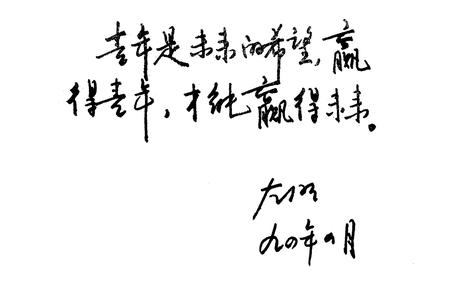 青年是未来的希望，赢
得青年，才能赢得未来。
九四年四月